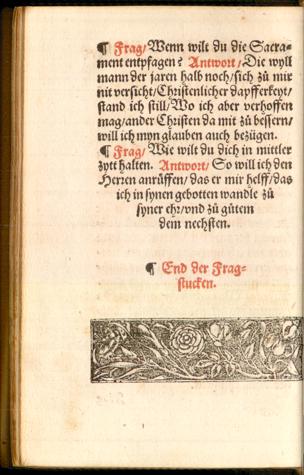 ¶ Frag/Wenn wilt du die Sacra-
ment entpfagen? Antwort/Die wyll
mann der jaren halb noch/sich zů mir
nit versicht/Christenlicher dapfferkeyt/
stand ich still/Wo ich aber verhoffen
mag/ander Christen da mit zů bessern/
will ich myn glauben auch bezügen.
¶ Frag/Wie wilt du dich in mittler
zytt halten. Antwort/So will ich den
Herren anrůffen/das er mir helff/das
ich in synen gebotten wandle zů
syner ehr/vnd zů gůtem
dem nechsten.
¶ End der Frag-
stucken.